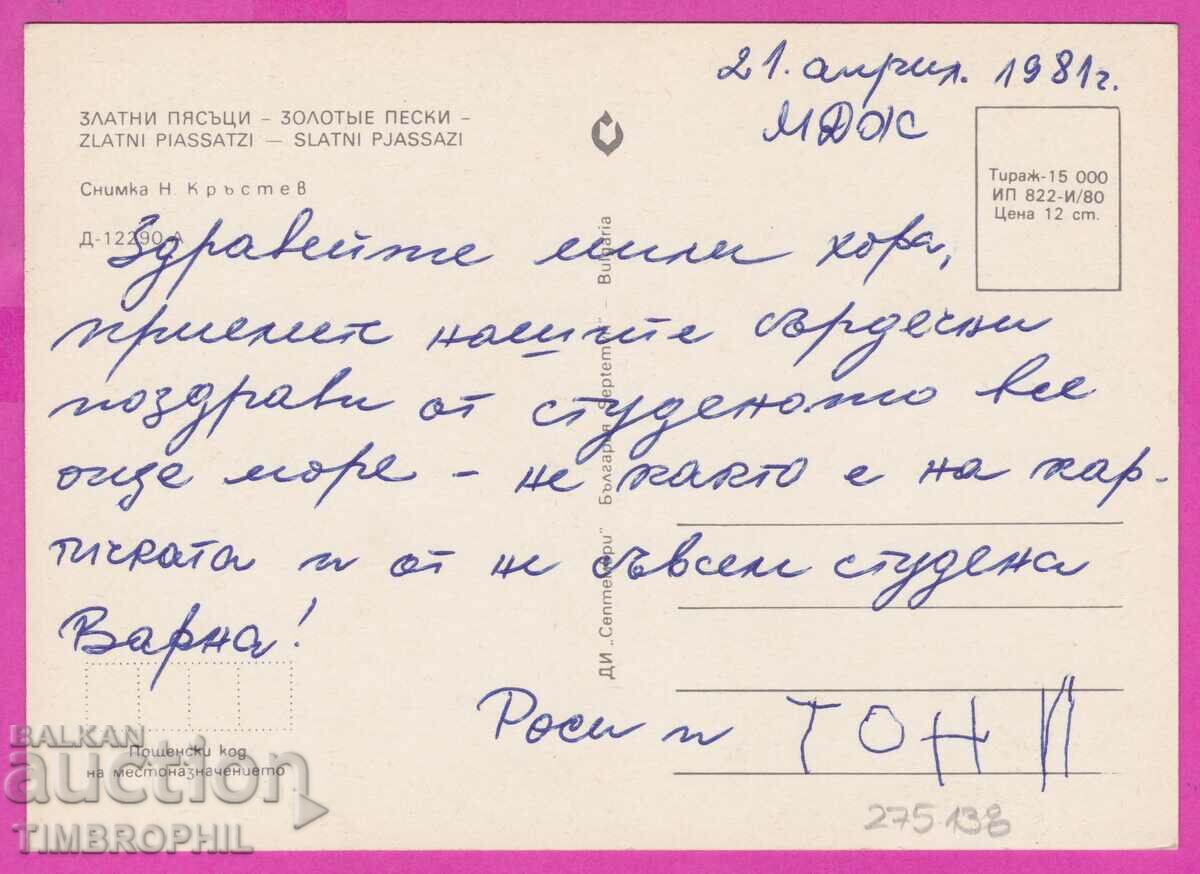 21. април. 1981г.
МДЖС
ЗЛАТНИ ПЯСЪЦИ – ЗОЛОТЫЕ ПЕСКИ –
ZLATNI PIASSATZI — SLATNI PJASSAZI
Снимка Н. Кръстев
Д-12290-А
Тираж-15 000
ИП 822-И/80
Цена 12 ст.
Здравейте мили хора,
приемете нашите сърдечни
поздрави от студеното все
още море – не както е на кар-
тичката и от не съвсем студена
Варна!
Роси и ТОНЙ
ДИ „Септември" България „Septemvri" – Bulgaria
Пощенски код
на местоназначението
275138
BALKAN
auction
TIMBROPHIL